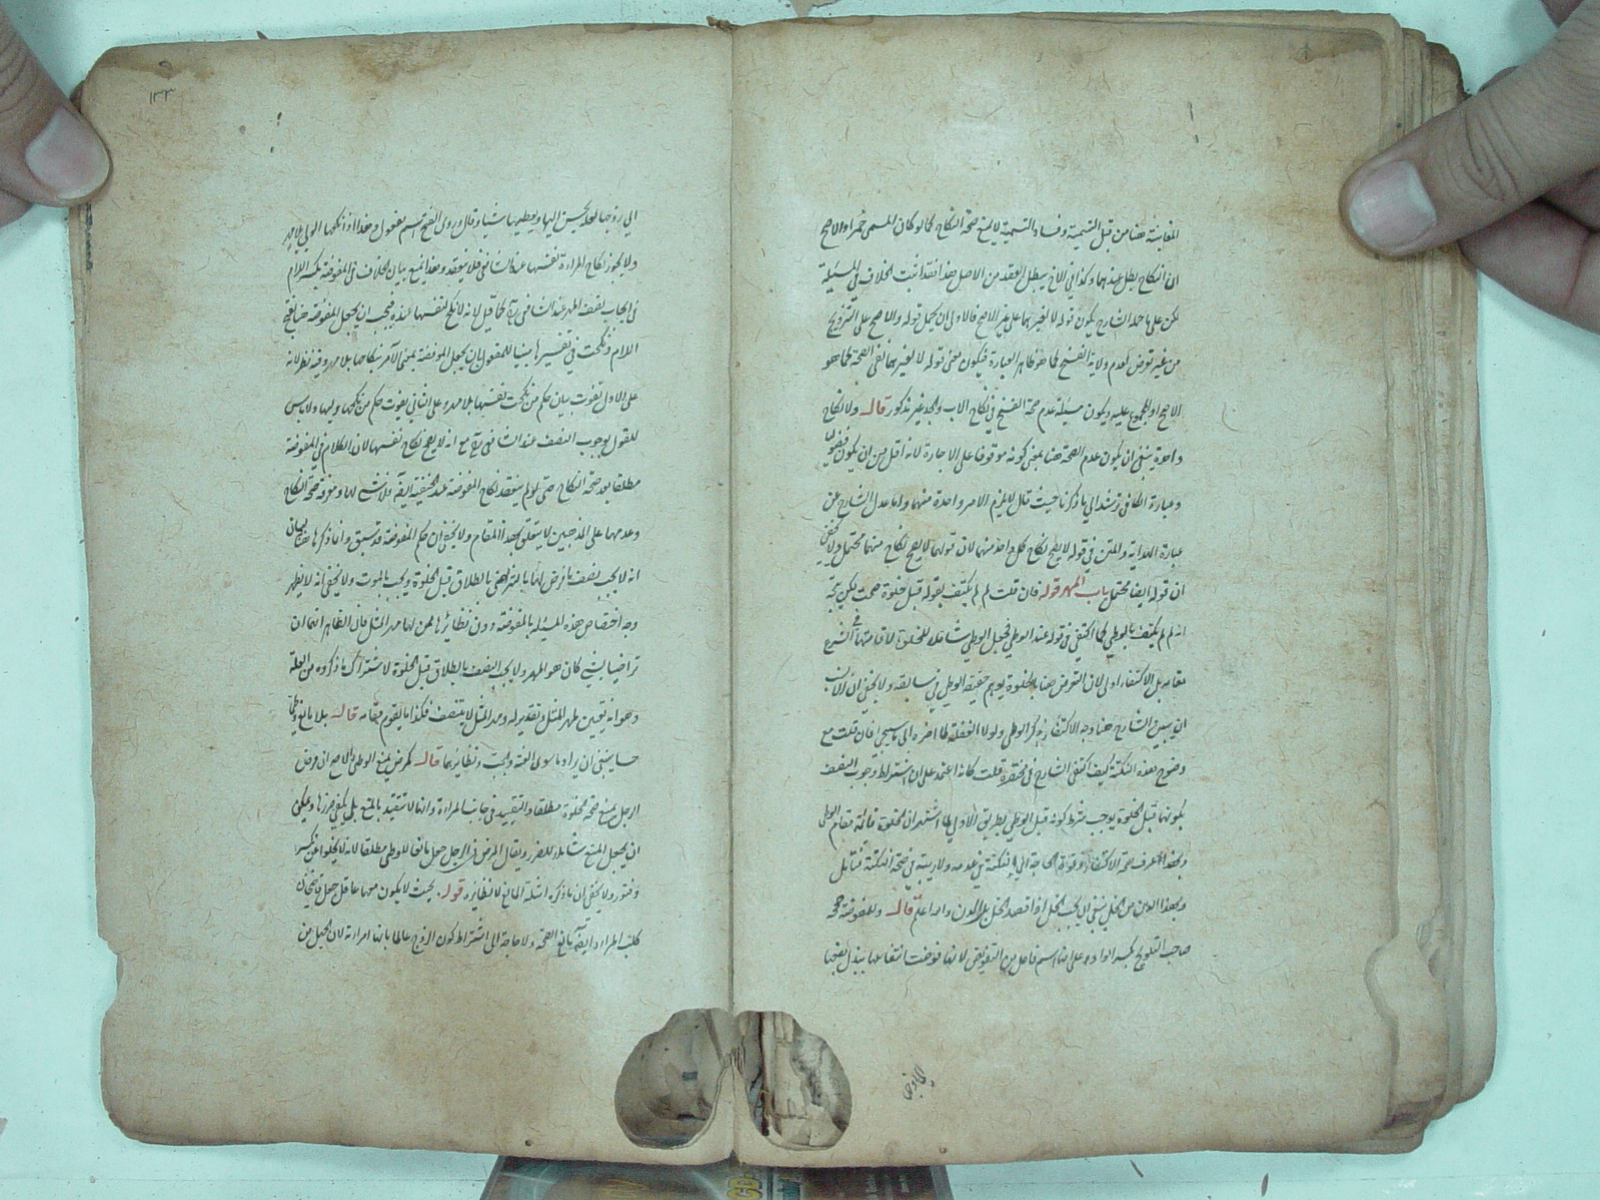 المغابنة هنا من قبل التسمية وفساد التسمية لا يمنع صحة النكاح كما لو كان المسمى خمرا والاصح
ان النكاح يطل عندهما وكذا في الاخ يبطل العقد من الاصل هذا فقد اثبت الخلاف في المسئلة
لكن على ما حمله الشارح يكون قوله لا لغيرهما على غير الاصح فالاولى ان يحمل قوله والاصح على التزويج
من غير تعرض لعدم ولاية الفسخ كما هو ظاهر العبارة فيكون معنى قوله لا لغيرهما نفى الصحة كما هو
الاصح او المجمع عليه ويكون مسئلة عدم صحة الفسخ في نكاح الاب والجد غير مذكور قال ولا نكاح
واحدة ينبغي ان يكون عدم الصحة هنا بمعنى كونه موقوفا على الاجازة لانه اقل من ان يكون فضوليا
وعبارة الكافي ترشد الى ما ذكرنا حيث قال لا يلزم الامر واحدة منهما وانما عدل الشارح عن
عبارة الهداية والمتن في قوله لا يصح نكاح كل واحد منهما لان قولهما لا يصح نكاح منهما محتمل ولا يخفى
ان قوله ايضا محتمل باب المهر قوله فان قلت لم لم يكتف بقوله قبل خلوة صحت
انه لم لم يكتف بالوطي كما اكتفى في قوله عند الوطي فجعل الوطي شاملا للخلوة لاقامتها في الشرع
مقامه بل الاكتفاء اولى لان التعرض هنا بالخلوة يوهم حقيقة الوطي في سابقه ولا يخفى ان الانسب
ان يبين الشارح هنا وجه الاكتفاء بذكر الوطي ولولا الغفلة لما اخره الى ما سيجئ فان قلت مع
وضوح هذه النكتة كيف اكتفى الشارح في مختصره قلت كانه اعتمد على ان اشتراط وجوب النصف
بكونها قبل الخلوة يوجب شرط كونه قبل الوطي بطريق الاولى لما اشتهر ان الخلوة قائمة مقام الوطي
وبهذا تعرف صحة الاكتفاء وقوة الحاجة الى النكتة في عدمه ولا ريبة في صحة النكتة فتأمل
وبهذا الدين من الخل ينبغي ان يجب الخل اذا قصد الخل بلا الدن والله اعلم قال وللمفوضة صححه
صاحب التلويح بكسر الواو على انها اسم فاعل من التفويض لانها فوضت انتفاعها ببذل بضعها
الكاد في
١٣٣
الى زوجها لعله يحسن اليها ويعطيها شيئا وقال وروى الفتح اسم مفعول وهذا اذا انكحها الولي بلا مهر
ولا يجوز نكاح المراءة نفسها عند الشافعي فلا ينعقد وهذا يمنع بيان الخلاف في المفوضة بكسر اللام
في ايجاب نصف المهر عند الشافعي كما قيل لانه لا نكاح لنفسها عنده فيجب ان يجعل المفوضة هنا بفتح
اللام ونكحت في تفسيرها مبنيا للمفعول بان يجعل المفوضة بمعنى الآمر بنكاحها بلا مهر وفيه نظر لانه
على الاول يفوت بيان حكم من نكحت نفسها بلا مهر وعلى الثاني يفوت حكم من نكحها وليها ولا باس
للقول بوجوب النصف عند الشافعي مع انه لا يصح نكاح نفسها لان الكلام في المفوضة
مطلقا بعد صحة النكاح حتى لو لم ينعقد نكاح المفوضة عند الحنفية ايضا فلا شئ لها ومعرفة صحة النكاح
وعدمها على المذهبين لا يتعلق بهذا المقام ولا يخفى ان حكم المفوضة قد سبق وانما ذكرها هنا لبيان
انه لا يجب نصف ما فرض لها بالتراضي بالطلاق قبل الخلوة ويجب بالموت ولا يخفى انه لا يظهر
وجه اختصاص هذه المسئلة بالمفوضة دون نظائرها ممن لها مهر المثل فان الظاهر انهما ان
تراضيا بشئ كان هو المهر ولا يجب النصف بالطلاق قبل الخلوة لاشتراك ما ذكروه من العلة
وهو انه تعيين لمهر المثل وتقدير له ومهر المثل لا يتنصف فكذا ما يقوم مقامه قال بلا مانع وطئ
حسا ينبغي ان يراد ما سوى العنة والجب ونظائرهما قال كمرض يمنع الوطي والاصح ان مرض
الرجل يمنع صحة الخلوة مطلقا والتقييد في جانب المراءة وانها لا تتقيد بالمنع بل يكفي ضررها ويمكن
ان يجعل المنع شاملا للضرر ويقال المرض في الرجل جعل مانعا للوطي مطلقا لانه لا يخلو عن تكسر
وفتور ولا يخفى ان ما ذكره امثلة المانع لا نظائره قوله بحيث لا يكون معهما عاقل جعل قاضيخان
كلب المراءة ايضا مانع الصحة ولا حاجة الى اشتراط كون الزوج عالما بانها امراءته لان الجهل من